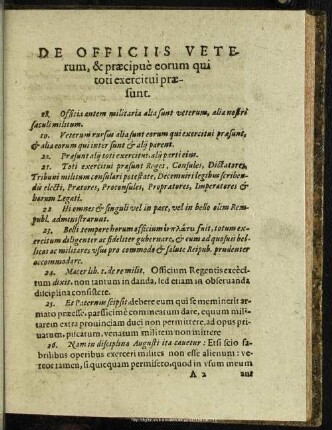 DE OFFICIIS VETE-
rum, & præcipuè eorum qui
toti exercitui præ-
sunt.
18. Officia autem militaria alia sunt veterum, alia nostri
sæculi militum.
19. Veterum rursus alia sunt eorum qui exercitui præsunt,
& alia eorum qui inter sunt & alij parent.
20. Præsunt alij toti exercitui, alij parti eius.
21. Toti exercitui præsunt Reges, Consules, Dictatores,
Tribuni militum consulari potestate, Decemuiri legibus scriben-
dis electi, Prætores, Proconsules, Proprætores, Imperatores &
horum Legati.
22. Hi omnes & singuli vel in pace, vel in bello olim Rem-
publ. administrarunt.
23. Belli tempore horum officium fuit, totum ex-
ercitum diligenter ac fideliter gubernare, & eum ad quosuis bel-
licos ac militares usus pro commodo & salute Reipub. prudenter
accommodare.
24. Macer lib. 1. de re milit. Officium Regentis exerci-
tum dixit, non tantum in danda, sed etiam in obseruanda
disciplina consistere.
25. Et Paternus scripsit, debere eum qui se meminerit ar-
mato præesse, parcissimè commeatum dare, equum mili-
tarem extra prouinciam duci non permittere, ad opus pri-
uatum, piscatum, venatum militem non mittere
26. Nam in disciplina Augusti ita cauetur: Etsi scio fa-
brilibus operibus exerceri milites non esse alienum: ve-
reor tamen, si quicquam permisero, quod in vsum meum
A 2 aut